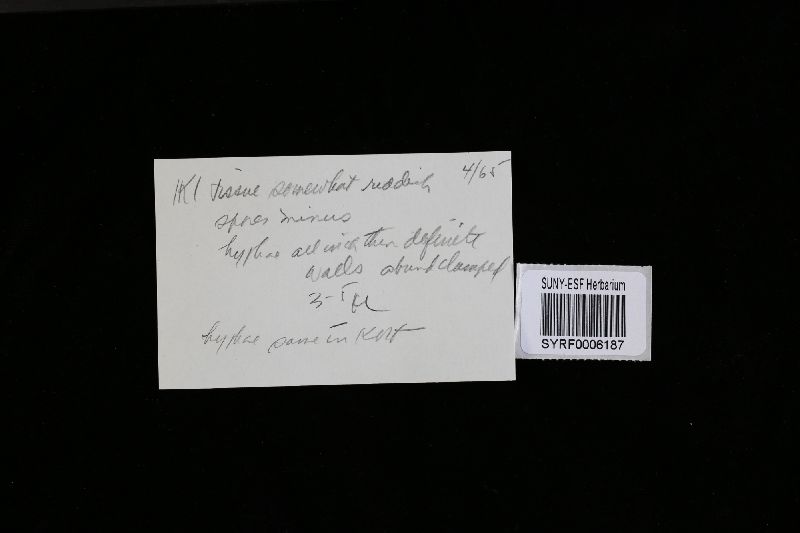 IKI tissue somewhat reddish 4/65
spores minus
hyphae all with thin definite
walls abund clamped
3-5 µ
hyphae same in KOH
SUNY-ESF Herbarium
SYRF0006187